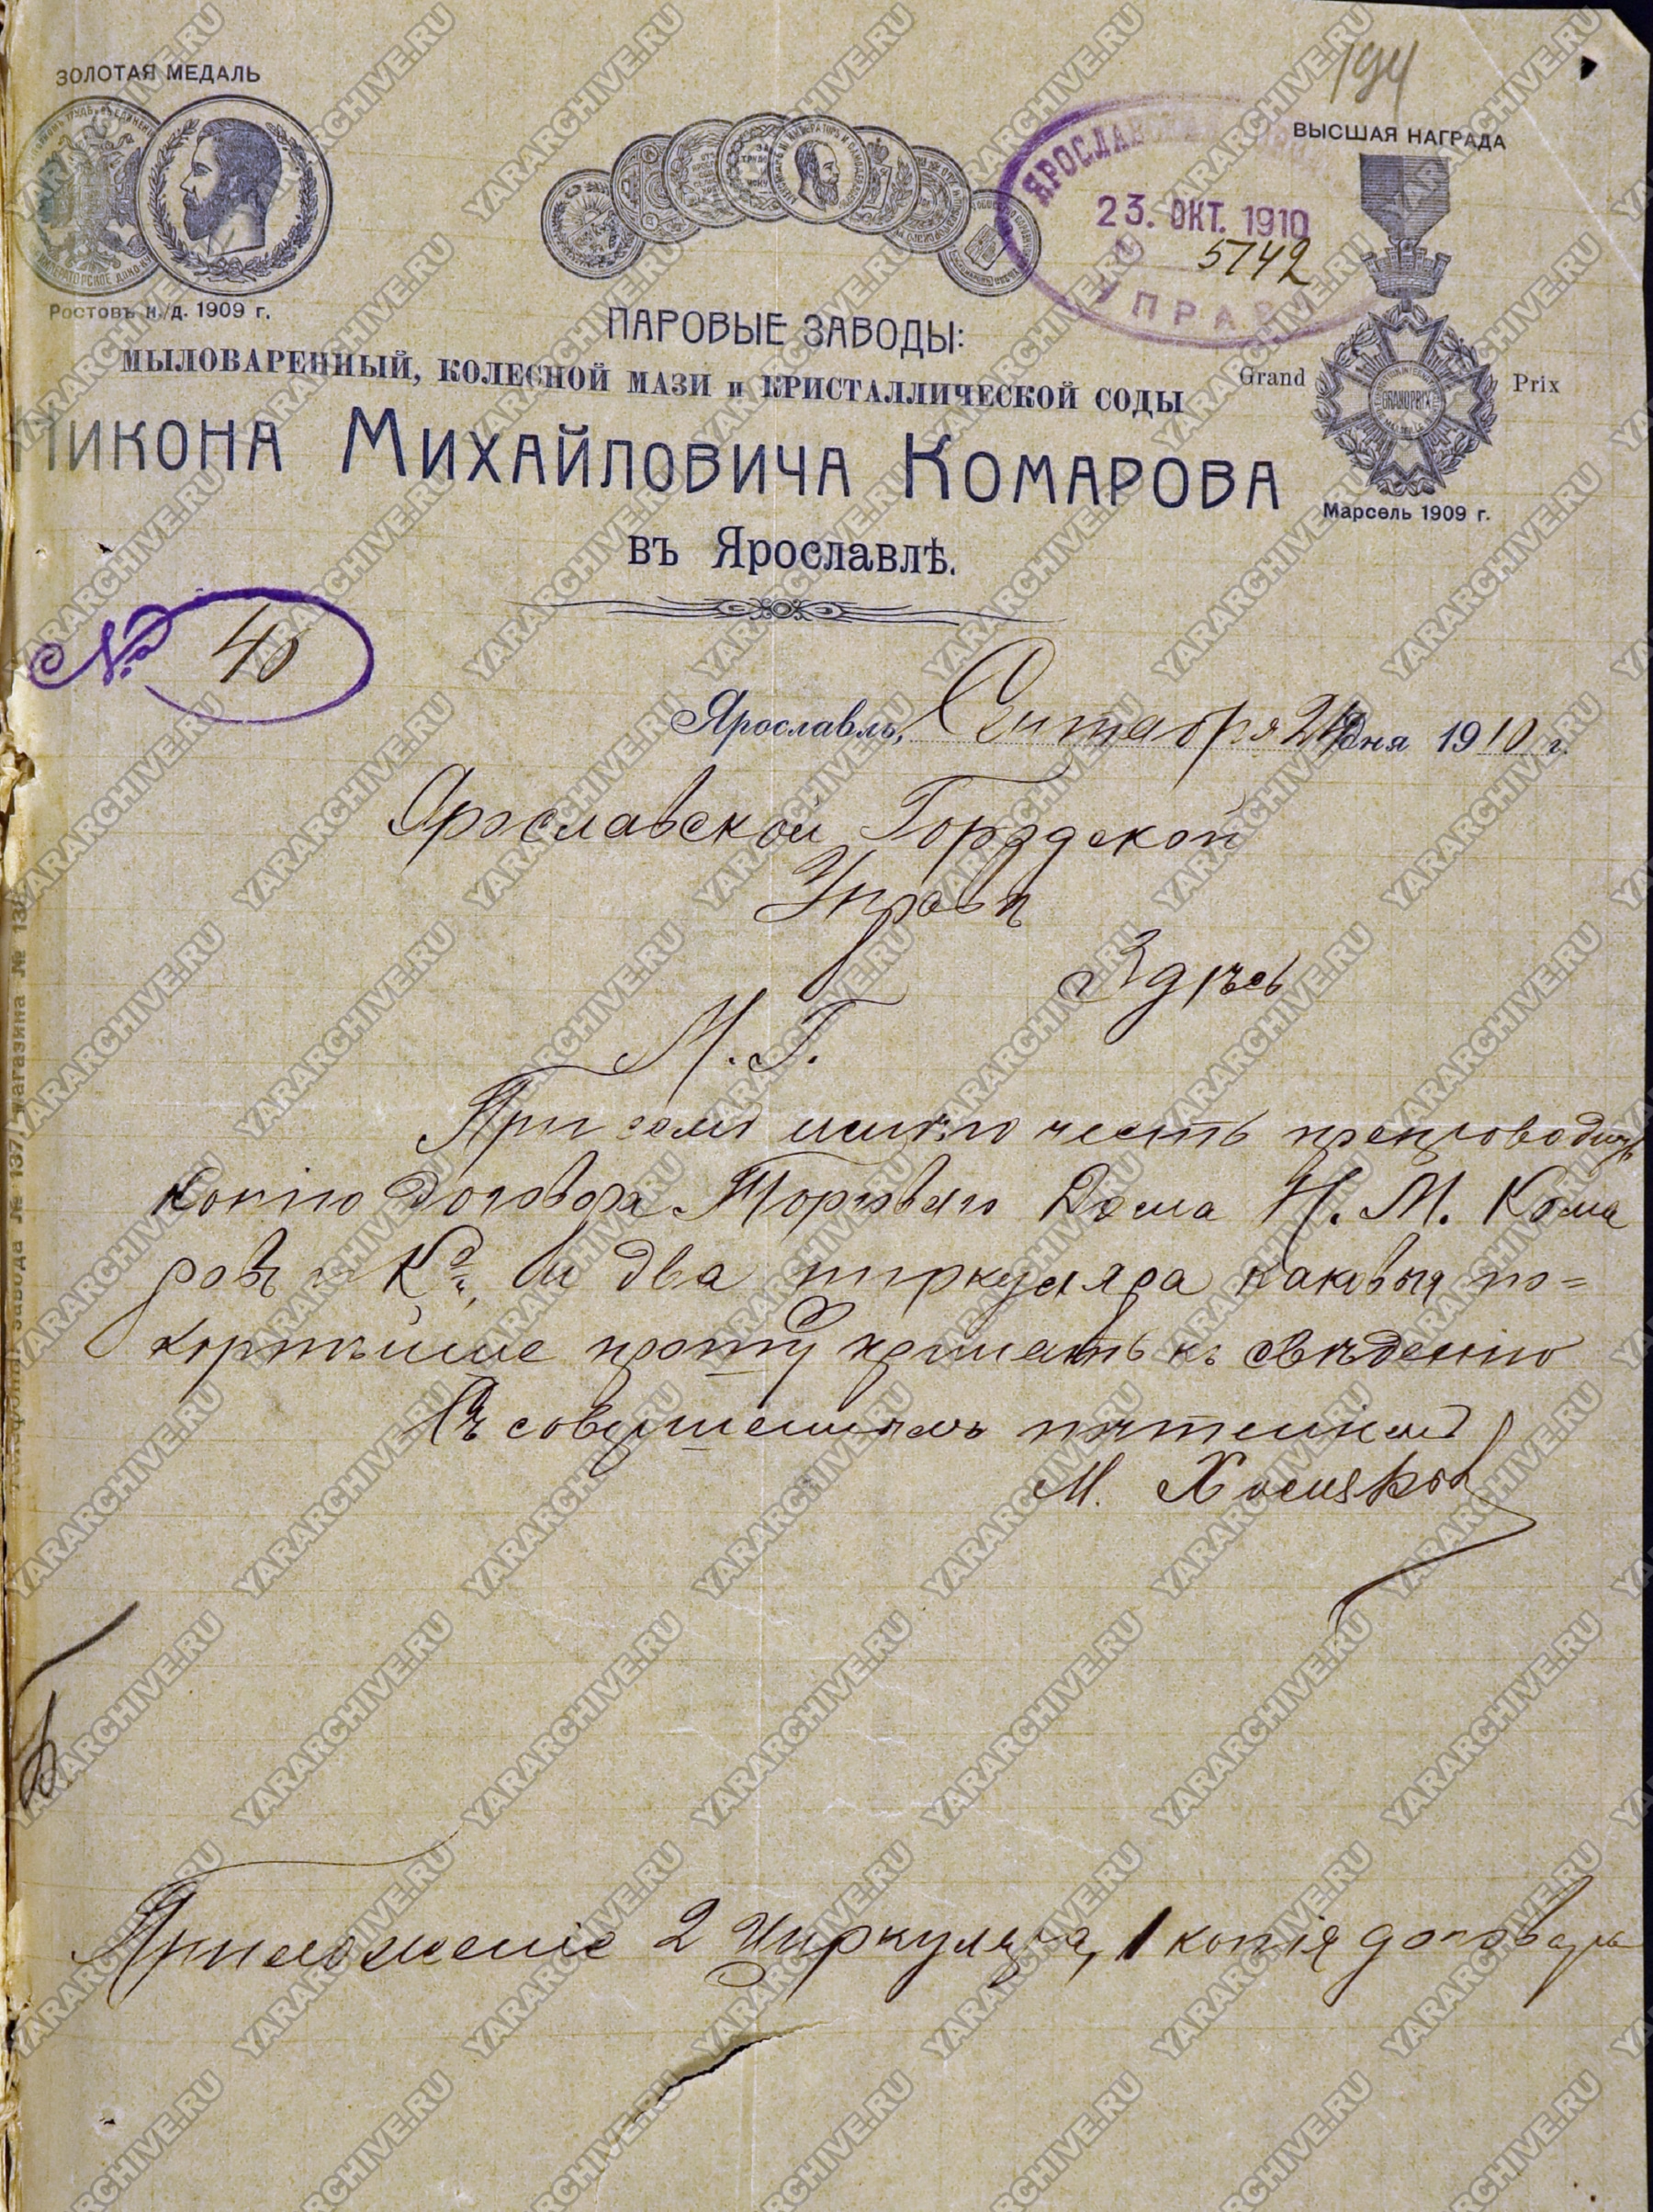 194
ЗОЛОТАЯ МЕДАЛЬ
Ростовъ н./д. 1909 г.
ВЫСШАЯ НАГРАДА
Grand Prix
Марсель 1909 г.
23. ОКТ. 1910
5742
УПРАВ
ПАРОВЫЕ ЗАВОДЫ:
МЫЛОВАРЕННЫЙ, КОЛЕСНОЙ МАЗИ и КРИСТАЛЛИЧЕСКОЙ СОДЫ
НИКОНА МИХАЙЛОВИЧА КОМАРОВА
въ Ярославлѣ.
№ 40
Ярославль, Сентября дня 1910 г.
Ярославской Городской
Управѣ
Здѣсь
М. Г.
При семъ имѣю честь препроводить
копію договора Торговаго Дома Н. М. Кома
ровъ и Ко, и два циркуляра каковыя по=
корнѣйше прошу принять къ свѣденію
Съ совершеннымъ почтеніемъ
М. Хомяков
Приложеніе 2 Циркуляра, 1 копія договора
YARARCHIVE.RU